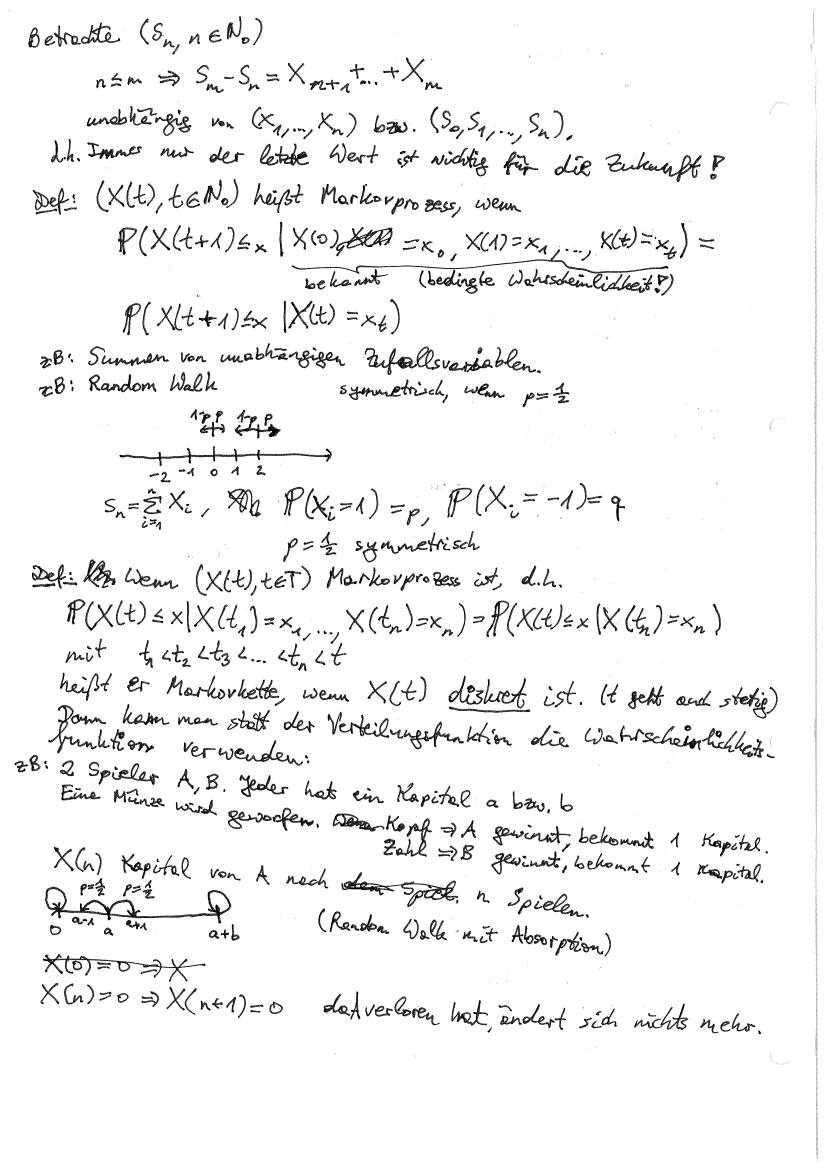 Betrachte (Sₙ, n ∈ ℕ₀)
n ≤ m ⇒ Sₘ - Sₙ = Xₙ₊₁ + ... + Xₘ
unabhängig von (X₁, ..., Xₙ) bzw. (S₀, S₁, ..., Sₙ),
d.h. Immer nur der letzte Wert ist wichtig für die Zukunft!
Def: (X(t), t ∈ ℕ₀) heißt Markovprozess, wenn
ℙ(X(t+1) ≤ x | X(0) = x₀, X(1) = x₁, ..., X(t) = xₜ) =
bekannt (bedingte Wahrscheinlichkeit!)
ℙ(X(t+1) ≤ x | X(t) = xₜ)
zB: Summen von unabhängigen Zufallsvariablen.
zB: Random Walk symmetrisch, wenn p = ½
1-p p 1-p p
-2 -1 0 1 2
Sₙ = ∑ᵢ₌₁ⁿ Xᵢ, ℙ(Xᵢ = 1) = p, ℙ(Xᵢ = -1) = q
p = ½ symmetrisch
Def: Wenn (X(t), t ∈ T) Markovprozess ist, d.h.
ℙ(X(t) ≤ x | X(t₁) = x₁, ..., X(tₙ) = xₙ) = ℙ(X(t) ≤ x | X(tₙ) = xₙ)
mit t₁ < t₂ < t₃ < ... < tₙ < t
heißt er Markovkette, wenn X(t) diskret ist. (t geht auch stetig)
Dann kann man statt der Verteilungsfunktion die Wahrscheinlichkeits-
funktion verwenden:
zB: 2 Spieler A, B. Jeder hat ein Kapital a bzw. b
Eine Münze wird geworfen. Kopf ⇒ A gewinnt, bekommt 1 Kapital.
Zahl ⇒ B gewinnt, bekommt 1 Kapital.
X(n) Kapital von A nach dem Spiel. n Spielen.
p=½ p=½
0 a-1 a a+1 a+b
(Random Walk mit Absorption)
X(0) = 0 ⇒ X
X(n) = 0 ⇒ X(n+1) = 0 da A verloren hat, ändert sich nichts mehr.